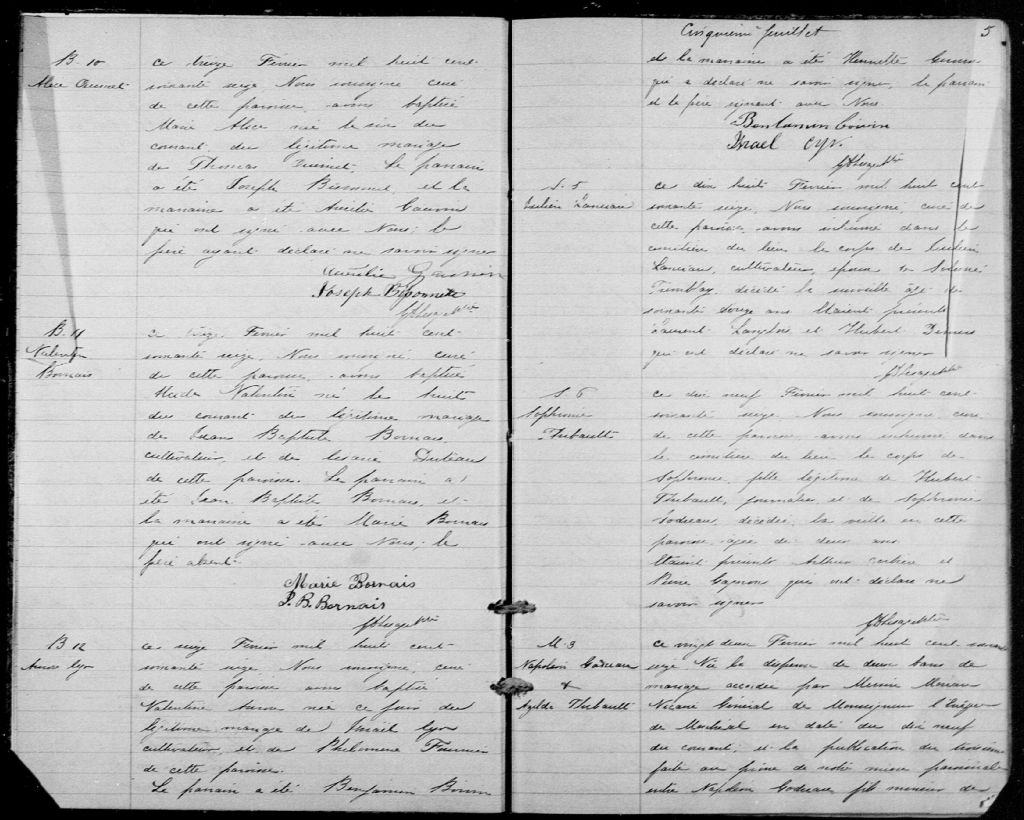 B. 10
Alice
ce treize Fevrier mil huit cent
soixante seize Nous soussigné curé
de cette paroisse avons baptisé
Marie Alice née le six du
courant du légitime mariage
de Thomas Le parrain
a été Joseph et la
marraine a été Aurélie
qui ont signé avec Nous; le
père ayant déclaré ne savoir signer
Aurélie
Joseph
B. 11
Valentin
Bornais
ce treize Fevrier mil huit cent
soixante seize, Nous soussigné curé
de cette paroisse, avons baptisé
Valentin né le huit
du courant du légitime mariage
de Jean Baptiste Bornais,
cultivateur, et de
de cette paroisse. Le parrain a
été Jean Baptiste Bornais, et
la marraine a été Marie Bornais
qui ont signé avec Nous, le
père absent.
Marie Bornais
J. B. Bornais
B 12
Cyr
ce seize Fevrier mil huit cent
soixante seize Nous soussigné, curé
de cette paroisse avons baptisé
Valentine née ce jour du
légitime mariage de Israël Cyr
cultivateur, et de Philomène Fournier
de cette paroisse.
Le parrain a été Benjamin
Cinquième feuillet
5
et la marraine a été Henriette
qui a déclaré ne savoir signer, le parrain
et le père signent avec Nous
Benjamin
Israel Cyr.
S. 5
ce dix huit Fevrier mil huit cent
soixante seize, Nous soussigné, curé de
cette paroisse avons inhumé dans le
cimetière du lieu le corps de
cultivateur, époux de
Tremblay, décédé la surveille âgé de
soixante douze ans Etaient présents
Laurent Langlois et Hubert Demers
qui ont déclaré ne savoir signer
S. 6
Sophronie
Thibault
ce dix neuf Fevrier mil huit cent
soixante seize Nous soussigné, curé
de cette paroisse avons inhumé dans
le cimetière du lieu le corps de
Sophronie, fille légitime de Hubert
Thibault, journalier, et de Sophronie
décédée la veille en cette
paroisse âgée de deux ans
Etaient présents Arthur et
Pierre Gagnon qui ont déclaré ne
savoir signer
M. 3
Napoléon
&
Azilda Thibault
ce vingt deux Fevrier mil huit cent soixante
seize Vu la dispense de deux bans de
mariage accordée par Messire Moreau
Vicaire Général de Monseigneur l'Evêque
de Montréal en date du dix neuf
du courant; et la publication du troisième
faite au prône de notre messe paroissiale
entre Napoléon fils mineur de